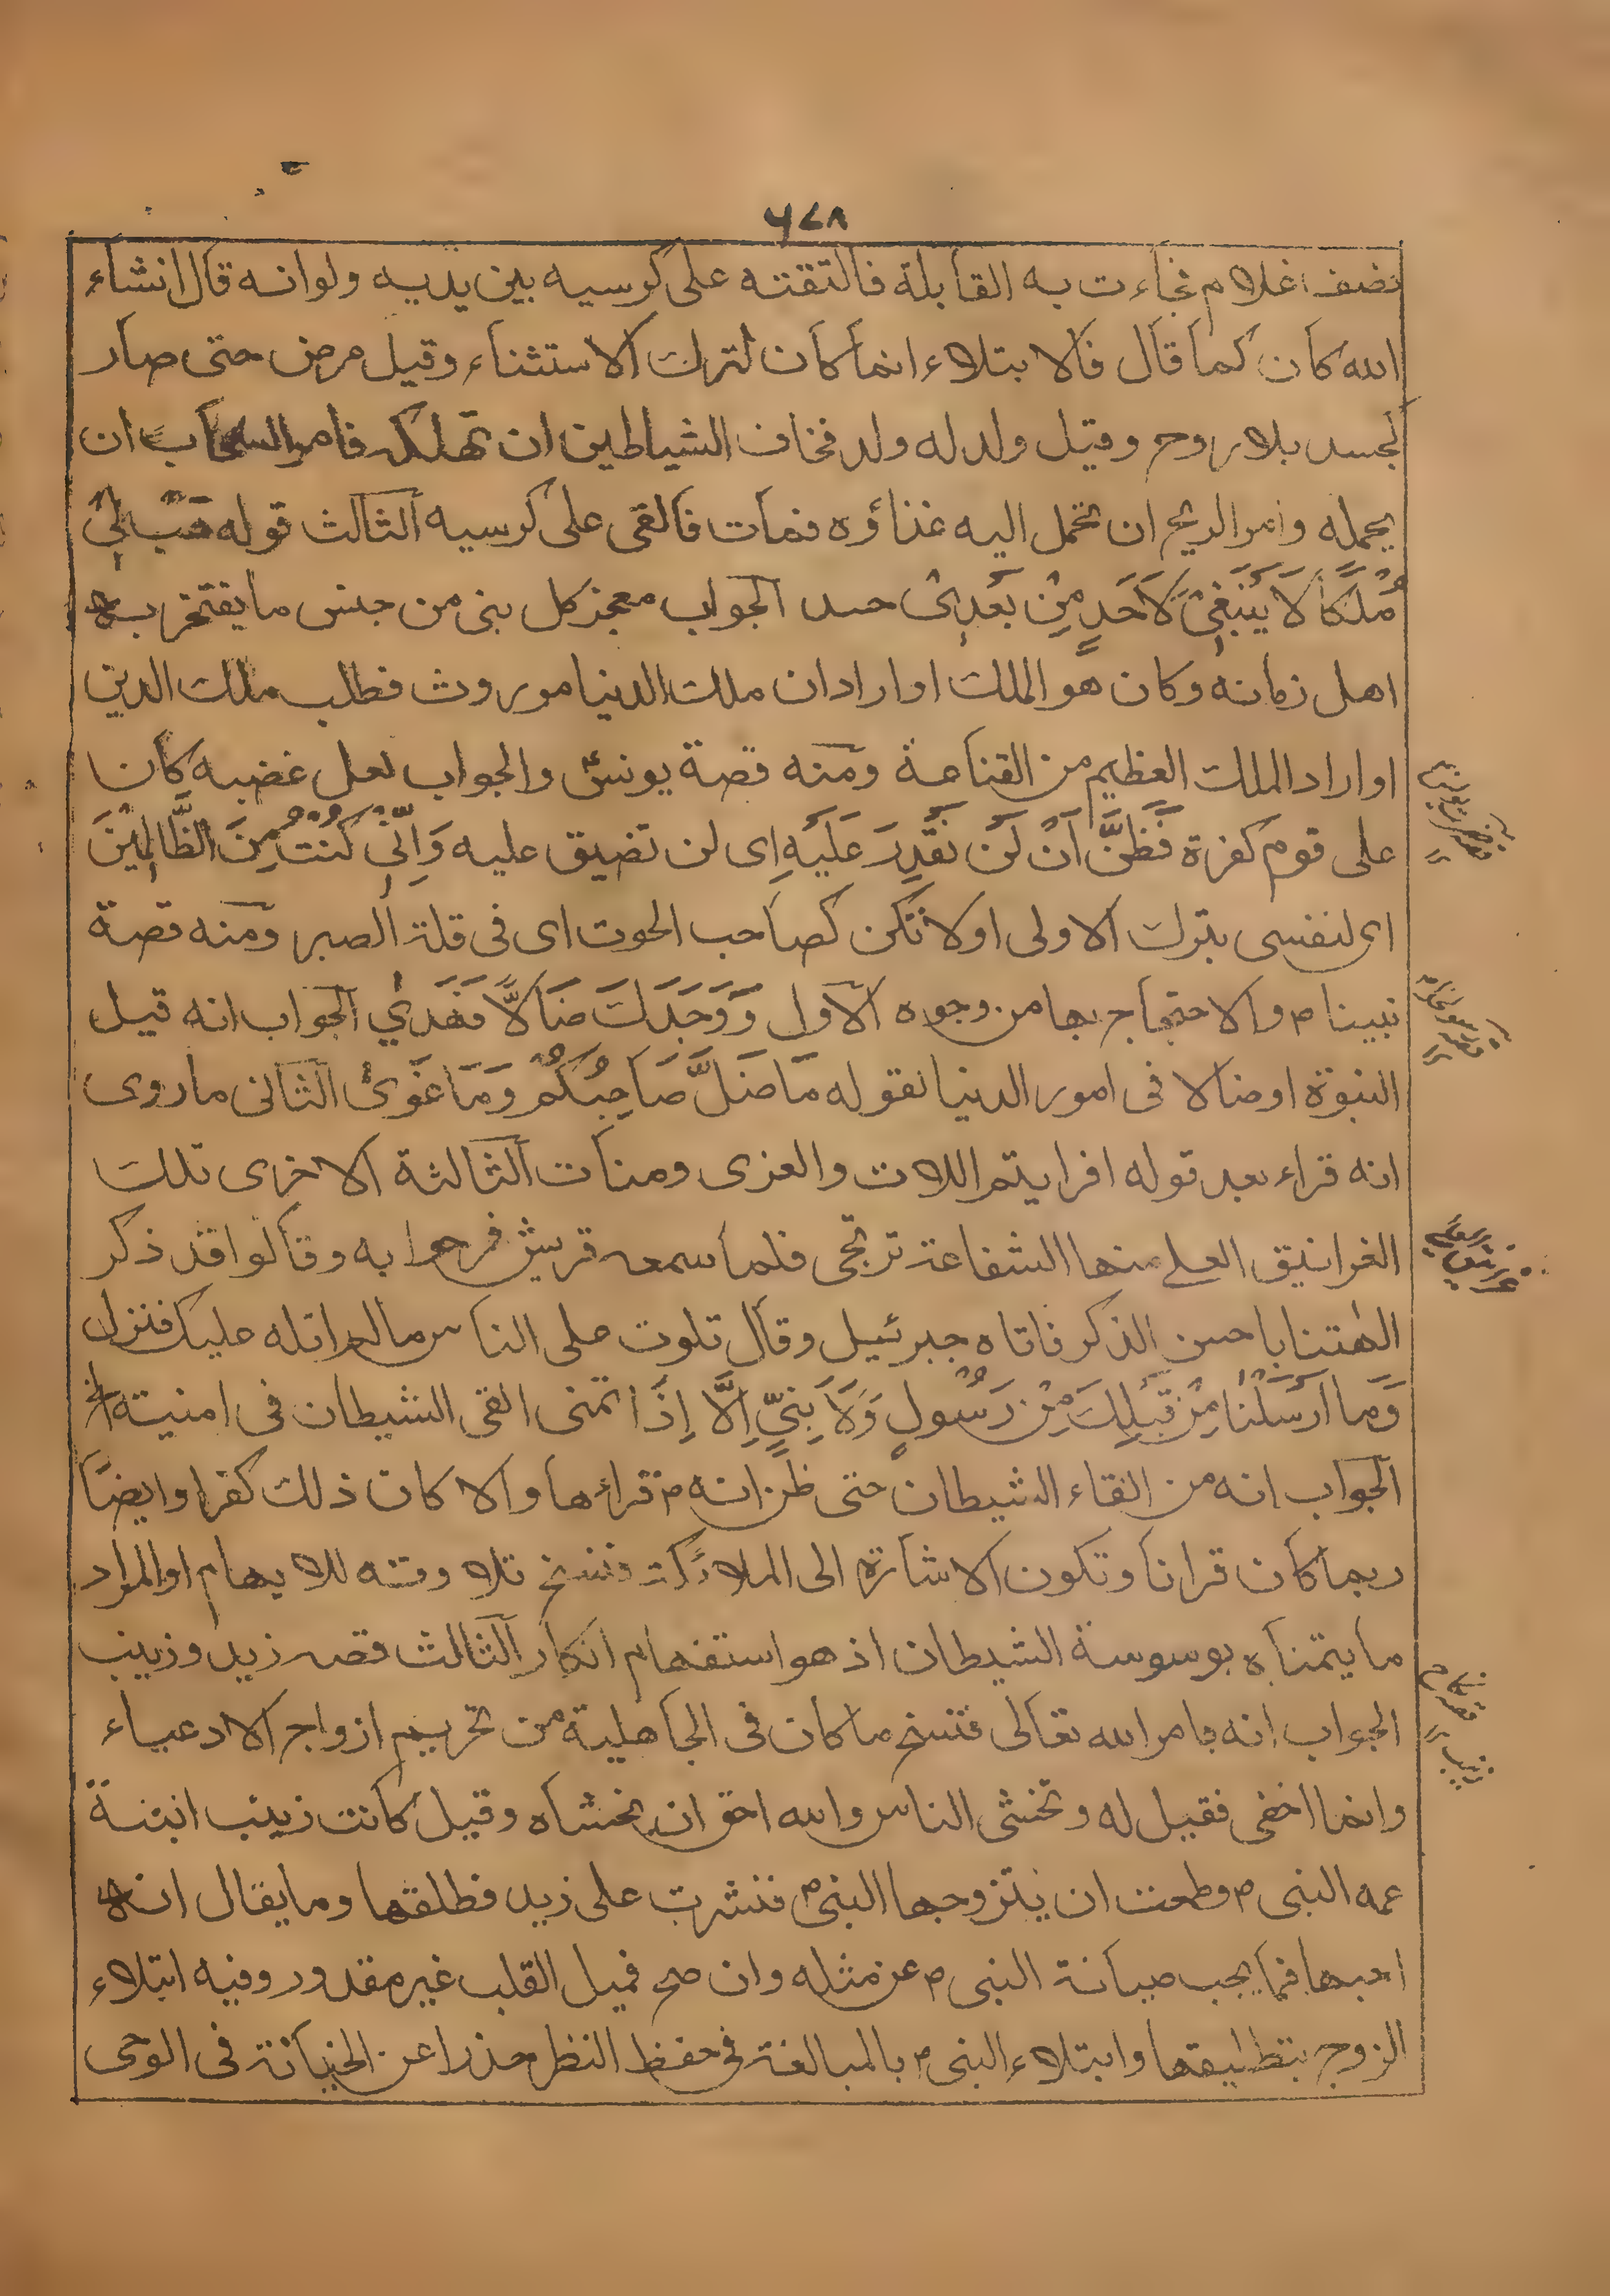 ٦٧٨
نصف غلام فجاءت به القابلة فالتقته على كرسيه بين يديه ولوانه قال انشاء
الله كان كما قال فالابتلاء انما كان لترك الاستثناء وقيل مرض حتى صار
لجسد بلا روح وقيل ولد له ولد فخاف الشياطين ان تهلكه فامر السحاب ان
يحمله وامر الريح ان تحمل اليه غذاؤه فمات فالقى على كرسيه الثالث قوله هَبْ لِىْ
مُلْكًا لَا يَنْبَغِىْ لِاَحَدٍ مِنْ بَعْدِىْ حسد الجواب معجز كل نبى من جنس ما يفتخر به
اهل زمانه وكان هو الملك او اراد ان ملك الدنيا موروث فطلب ملك الدين
او اراد الملك العظيم من القناعة ومنه قصة يونس والجواب لعل غضبه كان
على قوم كفرة فَظَنَّ اَنْ لَنْ نَقْدِرَ عَلَيْهِ اى لن نضيق عليه وَاِنِّىْ كُنْتُ مِنَ الظَّالِمِيْنَ
اى لنفسى بترك الاولى او لا تكن كصاحب الحوت اى فى قلة الصبر ومنه قصة
نبينا م والاحتجاج بها من وجوه الاول وَوَجَدَكَ ضَالًّا فَهَدٰي الجواب انه قبل
النبوة او ضالا فى امور الدنيا لقوله مَا ضَلَّ صَاحِبُكُمْ وَمَا غَوٰى الثانى ما روى
انه قراء بعد قوله افرايتم اللات والعزى ومنات الثالثة الاخرى تلك
الغرانيق العلى منها الشفاعة ترتجى فلما سمعه قريش فرحوا به وقالوا قد ذكر
الهتنا باحسن الذكر فاتاه جبرئيل وقال تلوت على الناس مالم اتله عليك فنزل
وَمَا اَرْسَلْنَا مِنْ قَبْلِكَ مِنْ رَسُوْلٍ وَلَا نَبِىٍّ اِلَّا اِذَا تمنى القى الشيطان فى امنيته الخ
الجواب انه من القاء الشيطان حتى ظن انه م قراءها والا كان ذلك كفرا وايضا
ربما كان قرانا وتكون الاشارة الى الملائكة فنسخ تلاوته للايهام او المراد
ما يتمناه بوسوسة الشيطان اذ هو استفهام انكار الثالث قصه زيد وزينب
الجواب انه بامر الله تعالى فنسخ ما كان فى الجاهلية من تحريم ازواج الادعياء
وانما اخفى فقيل له وتخشى الناس والله احق ان تخشاه وقيل كانت زينب ابنة
عمه النبى م وطمعت ان يتزوجها النبى م فنشرت على زيد فطلقها وما يقال انه
احبها فمما يجب صيانة النبى م عن مثله وان صح فميل القلب غير مقدور وفيه ابتلاء
الزوج بتطليقها وابتلاء النبى م بالمبالغة فى حفظ النظر حذرا عن الخيانة فى الوحى